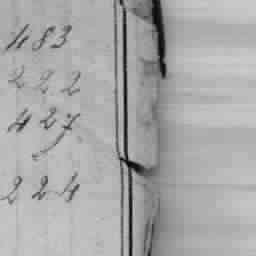 483
222
427
224